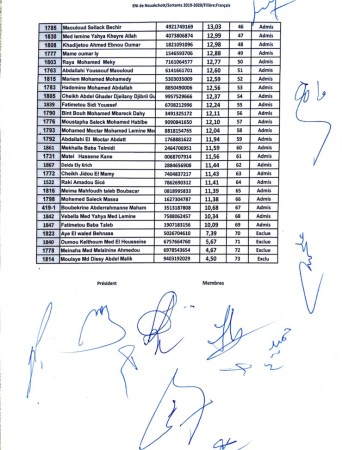 ENI de Nouakchott/Sortants 2019-2020/Filière:Français
1785 Maouloud Sellack Bechir 4921749169 13,03 46 Admis
1830 Med lemine Yahya Khayre Allah 4073806874 12,99 47 Admis
1808 Khadijetou Ahmed Ebnou Oumar 1821091096 12,98 48 Admis
1777 Mame oumar ly 1546593706 12,88 49 Admis
1803 Raya Mohamed Meky 7161064577 12,77 50 Admis
1763 Abdallahi Youssouf Maouloud 6141661701 12,60 51 Admis
1815 Mariem Mohamed Mohamedy 5303035009 12,59 52 Admis
1783 Hademine Mohamed Abdallah 8850490006 12,56 53 Admis
1805 Cheikh Abdel Ghader Djeilany Djibril Gu 9957529666 12,37 54 Admis
1839 Fatimetou Sidi Youssef 6708212996 12,24 55 Admis
1790 Bint Bouh Mohamed Mbareck Dahy 3491325172 12,11 56 Admis
1776 Moustapha Saleck Mohamed Habibe 9090841650 12,10 57 Admis
1793 Mohamed Moctar Mohamed Lemine Me 8818154765 12,04 58 Admis
1792 Abdallahi El Moctar Abdatt 1768881622 11,94 59 Admis
1861 Makhalla Baba Telmidi 2464706951 11,59 60 Admis
1731 Matel Hassene Kane 0068707914 11,56 61 Admis
1867 Deida Ely Krich 2884656908 11,44 62 Admis
1772 Cheikh Jidou El Mamy 7404837217 11,43 63 Admis
1522 Raki Amadou Sicé 7862690312 11,41 64 Admis
1816 Meima Mahfoudh taleb Boubacar 0818995833 11,39 65 Admis
1798 Mohamed Saleck Massa 1627304787 11,38 66 Admis
419-1 Boubekrine Abderrahmanne Maham 3513187808 10,68 67 Admis
1842 Vebella Med Yahya Med Lemine 7588062457 10,34 68 Admis
1847 Fatimetou Baba Taleb 1907183156 10,09 69 Admis
1823 Aye El waled Behnass 5026704610 7,39 70 Exclue
1840 Oumou Kelthoum Med El Housseine 6757664760 5,67 71 Exclue
1778 Meinaha Med Melainine Ahmedou 6978543654 4,67 72 Exclue
1814 Moulaye Md Dissy Abdel Malik 9403192029 4,50 73 Exclu
Président Membres